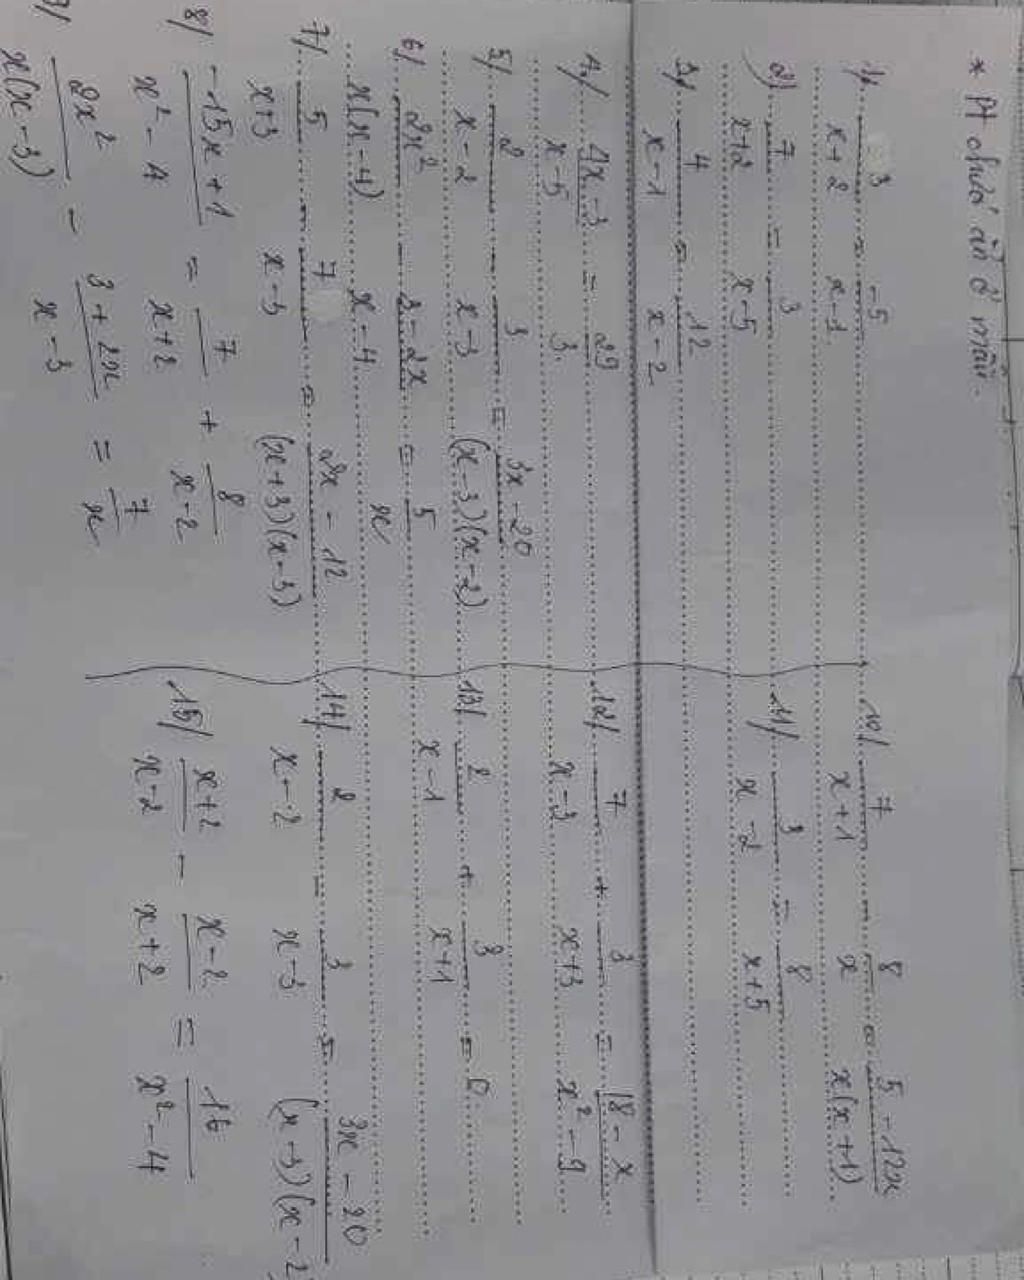 * Pt chứa ẩn ở mẫu.
1/ 3/(x+2) = -5/(x-1)
2/ 7/(x+2) = 3/(x-5)
3/ 4/(x-1) = 12/(x-2)
4/ (4x-3)/(x-5) = 29/3
5/ 2/(x-2) - 3/(x-3) = (3x-20)/((x-3)(x-2))
6/ 2x²/(x(x-4)) - (3-2x)/(x-4) = 5/x
7/ 5/(x+3) - 7/(x-3) = (2x-12)/((x+3)(x-3))
8/ (-15x+1)/(x²-4) = 7/(x+2) + 8/(x-2)
9/ 2x²/(x(x-3)) - (3+2x)/(x-3) = 7/x
10/ 7/(x+1) - 8/x = (5-12x)/(x(x+1))
11/ 3/(x-2) = 8/(x+5)
12/ 7/(x-3) + 3/(x+3) = (18-x)/(x²-9)
13/ 2/(x-1) + 3/(x+1) = 0
14/ 2/(x-2) - 3/(x-3) = (3x-20)/((x-3)(x-2
15/ (x+2)/(x-2) - (x-2)/(x+2) = 16/(x²-4)